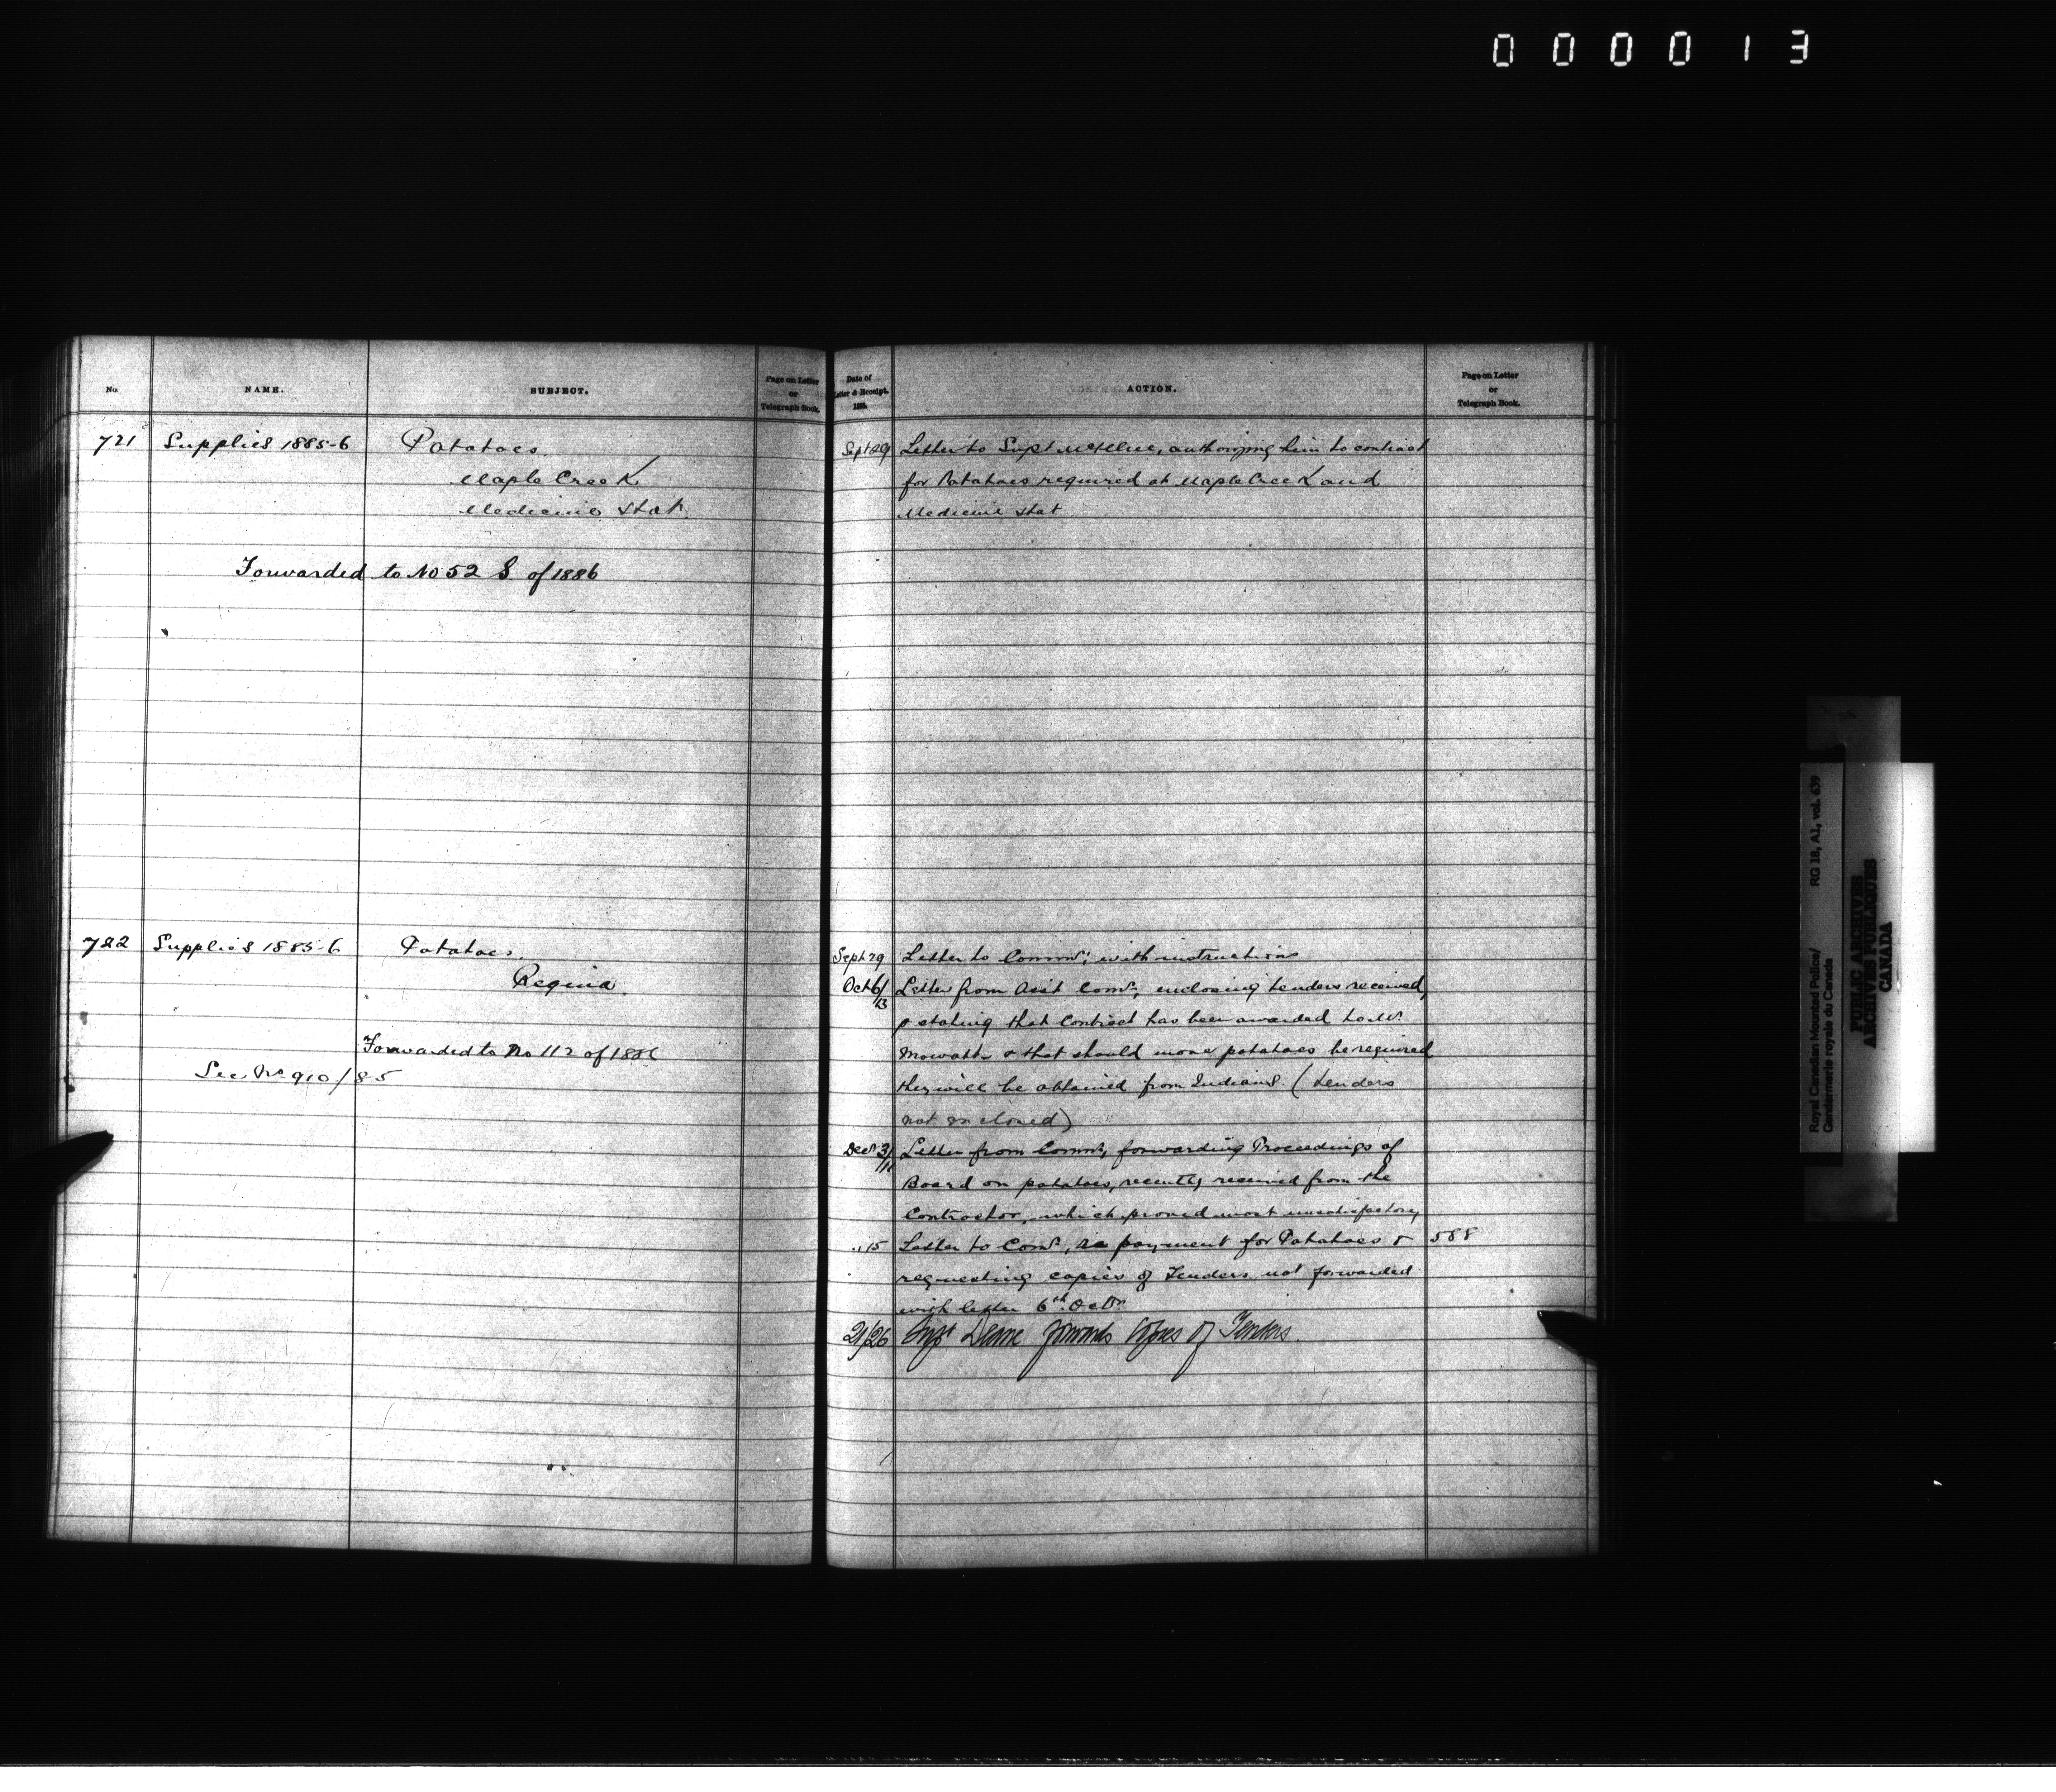 000013
No.
NAME.
SUBJECT.
Page on Letter
or
Telegraph Book.
Date of
Letter & Receipt.
188
ACTION.
Page on Letter
or
Telegraph Book.
721 Supplies 1885-6 Potatoes.
Maple Creek
Medicine Hat
Forwarded to No 52 S of 1886
Sept 29 Letter to Supt McIllree, authorizing him to contract
for Potatoes required at Maple Creek and
Medicine Hat
722 Supplies 1885-6 Potatoes.
Regina.
Forwarded to No 112 of 1886
See No 910/85
Sept 29 Letter to Commr; with instructions
Oct 6/13 Letter from Asst Comr, enclosing tenders received,
& stating that contract has been awarded to Mr
Mowatt & that should more potatoes be required
they will be obtained from Indians. (Tenders
not enclosed)
Decr 3/11 Letter from Commr, forwarding Proceedings of
Board on potatoes, recently received from the
Contractor, which proved most unsatisfactory
" 15 Letter to Comr, re payment for Potatoes & 588
requesting copies of Tenders not forwarded
with letter 6th Octr
21/26 Supt Deane forwards copies of Tenders
Royal Canadian Mounted Police/
Gendarmerie royale du Canada
RG 18, A1, vol. 639
PUBLIC ARCHIVES
ARCHIVES PUBLIQUES
CANADA